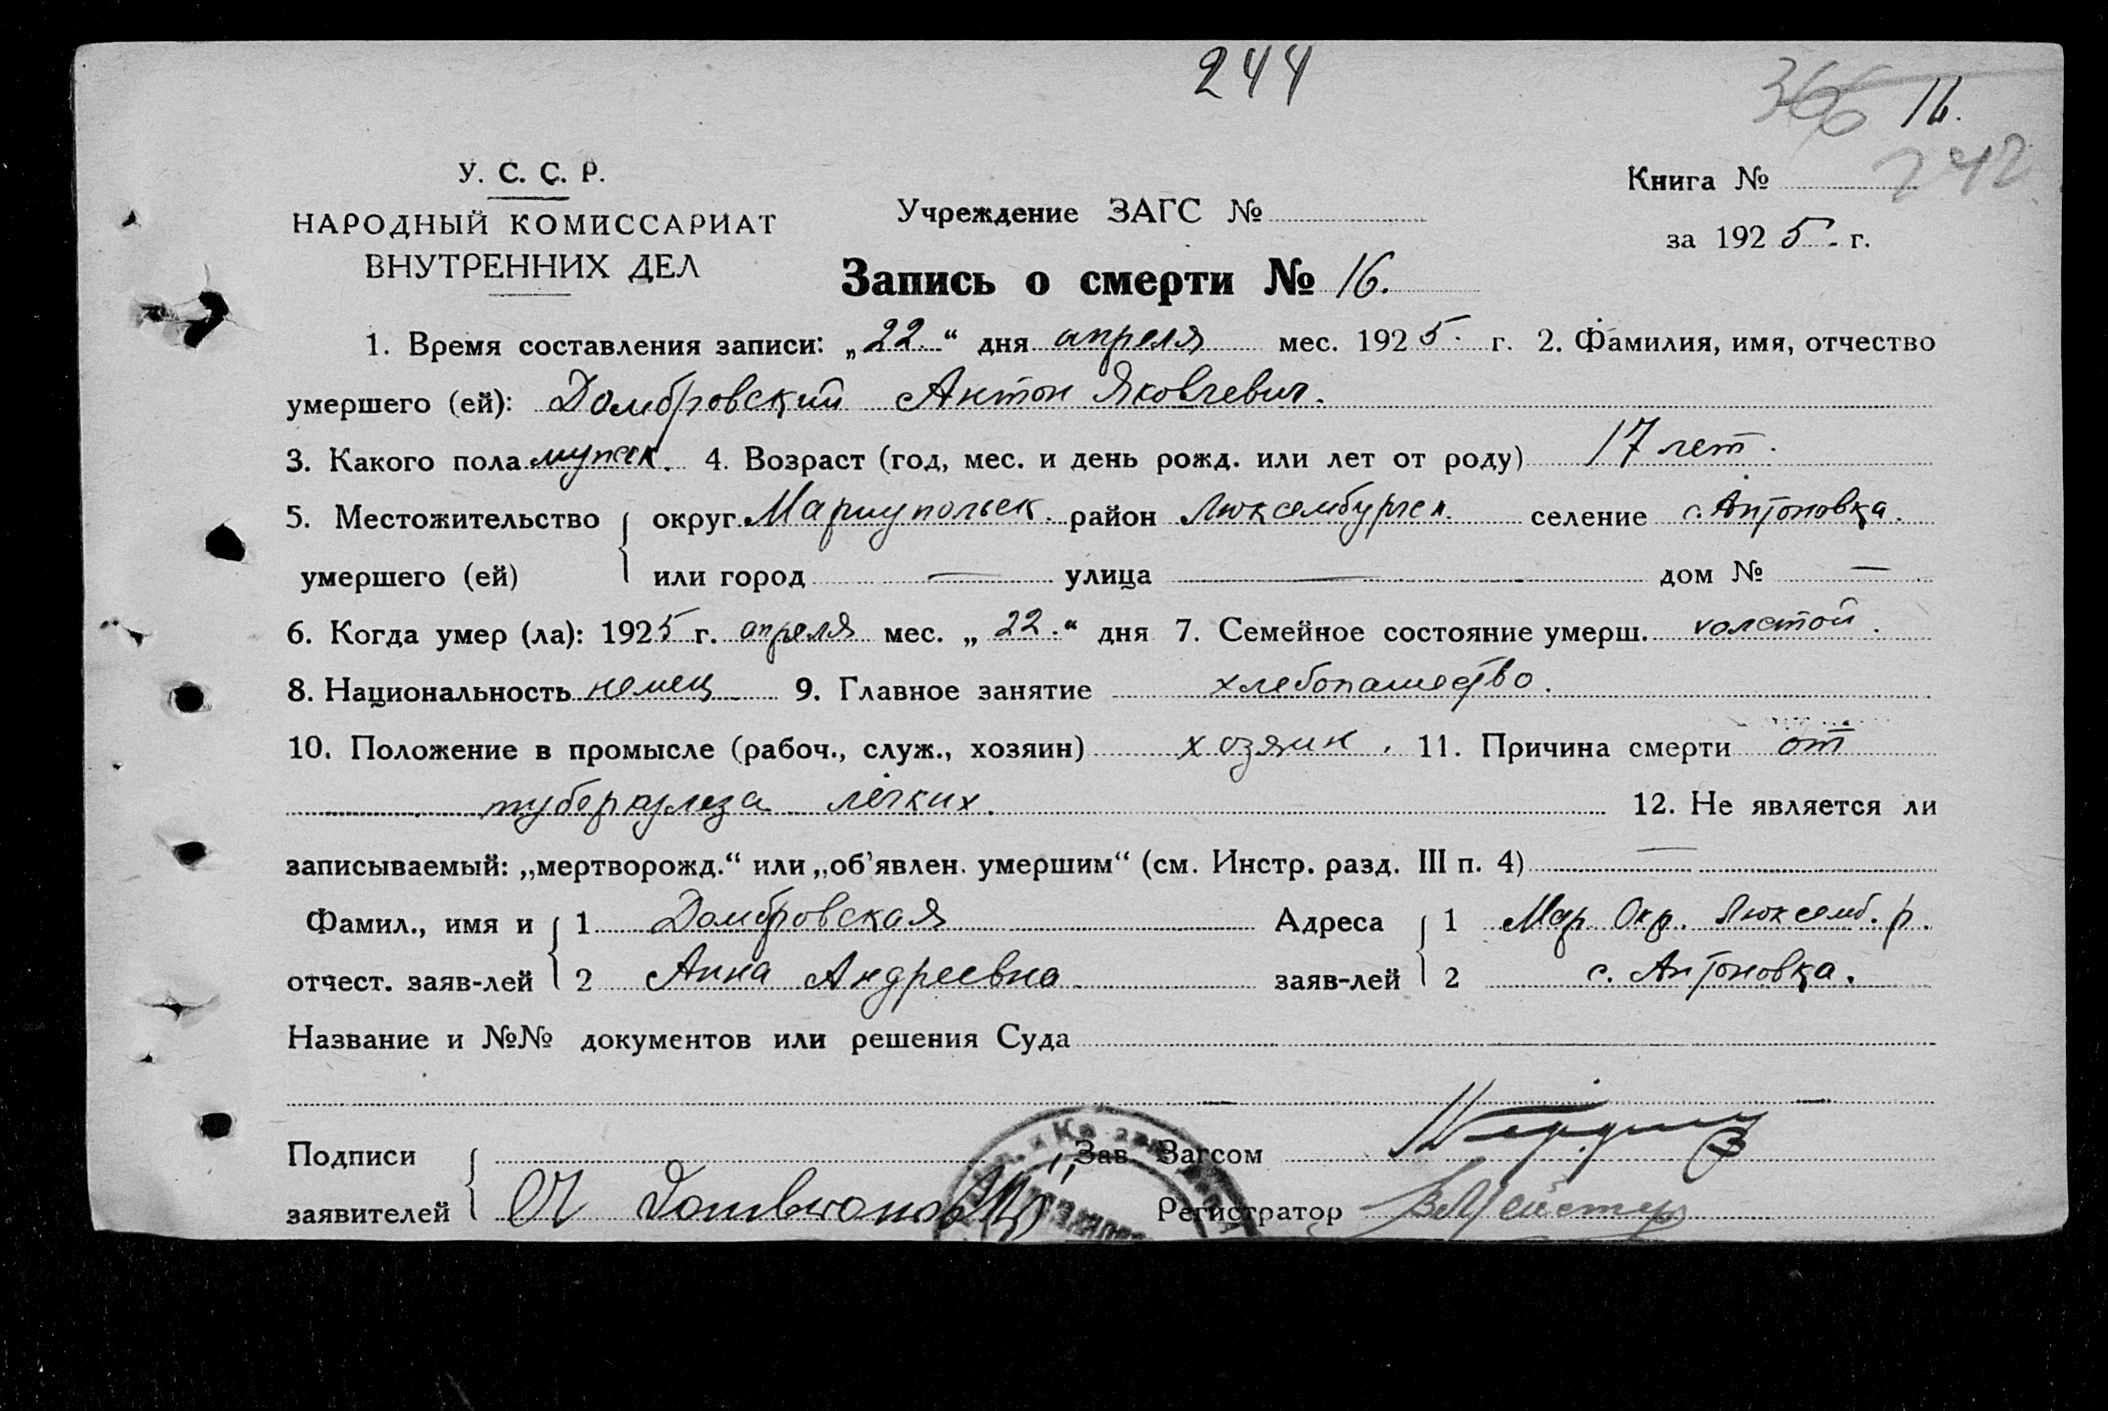 244
366 16.
242
У. С. С. Р.
НАРОДНЫЙ КОМИССАРИАТ
ВНУТРЕННИХ ДЕЛ
Учреждение ЗАГС №
Книга №
за 1925. г.
Запись о смерти № 16.
1. Время составления записи: „22.“ дня апреля мес. 1925. г. 2. Фамилия, имя, отчество
умершего (ей): Домбровский Антон Яковлевич.
3. Какого пола мужск. 4. Возраст (год, мес. и день рожд. или лет от роду) 17 лет.
5. Местожительство округ Мариупольск. район Люксембургск. селение с. Антоновка.
умершего (ей) или город — улица — дом № —
6. Когда умер (ла): 1925 г. апреля мес. „22.“ дня 7. Семейное состояние умерш. холстой.
8. Национальность немец 9. Главное занятие хлебопашество.
10. Положение в промысле (рабоч., служ., хозяин) хозяин. 11. Причина смерти от
туберкулеза легких. 12. Не является ли
записываемый: „мертворожд.“ или „об'явлен. умершим“ (см. Инстр. разд. III п. 4) —
Фамил., имя и 1 Домбровская Адреса 1 Мар. Окр. Люксемб. р.
отчест. заяв-лей 2 Анна Андреевна. заяв-лей 2 с. Антоновка.
Название и №№ документов или решения Суда
Подписи Зав. Загсом
заявителей Регистратор